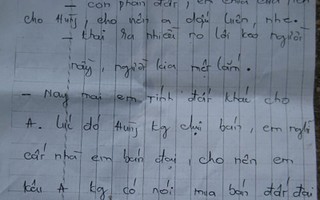 - con phần đất, em chưa
cho Hưng, cho nên a đợi luôn, nhe.
- khai ra nhiều nó lôi kéo người
này, người kia mệt lắm.
- Nay mai em tính đất khác cho
A. lúc đó Hưng kg chịu bán, em nghĩ
cất nhà em bán đại, cho nên em
kêu A kg có nói mua bán đất đai